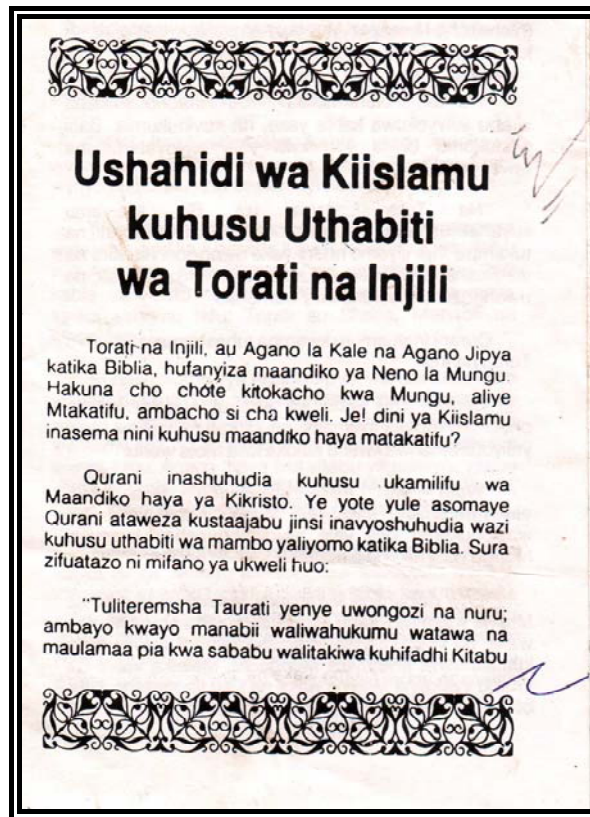 Ushahidi wa Kiislamu
kuhusu Uthabiti
wa Torati na Injili
Torati na Injili, au Agano la Kale na Agano Jipya
katika Biblia, hufanyiza maandiko ya Neno la Mungu.
Hakuna cho chote kitokacho kwa Mungu, aliye
Mtakatifu, ambacho si cha kweli. Je! dini ya Kiislamu
inasema nini kuhusu maandiko haya matakatifu?
Qurani inashuhudia kuhusu ukamilifu wa
Maandiko haya ya Kikristo. Ye yote yule asomaye
Qurani ataweza kustaajabu jinsi inavyoshuhudia wazi
kuhusu uthabiti wa mambo yaliyomo katika Biblia. Sura
zifuatazo ni mifano ya ukweli huo:
"Tuliteremsha Taurati yenye uwongozi na nuru;
ambayo kwayo manabii waliwahukumu watawa na
maulamaa pia kwa sababu walitakiwa kuhifadhi Kitabu